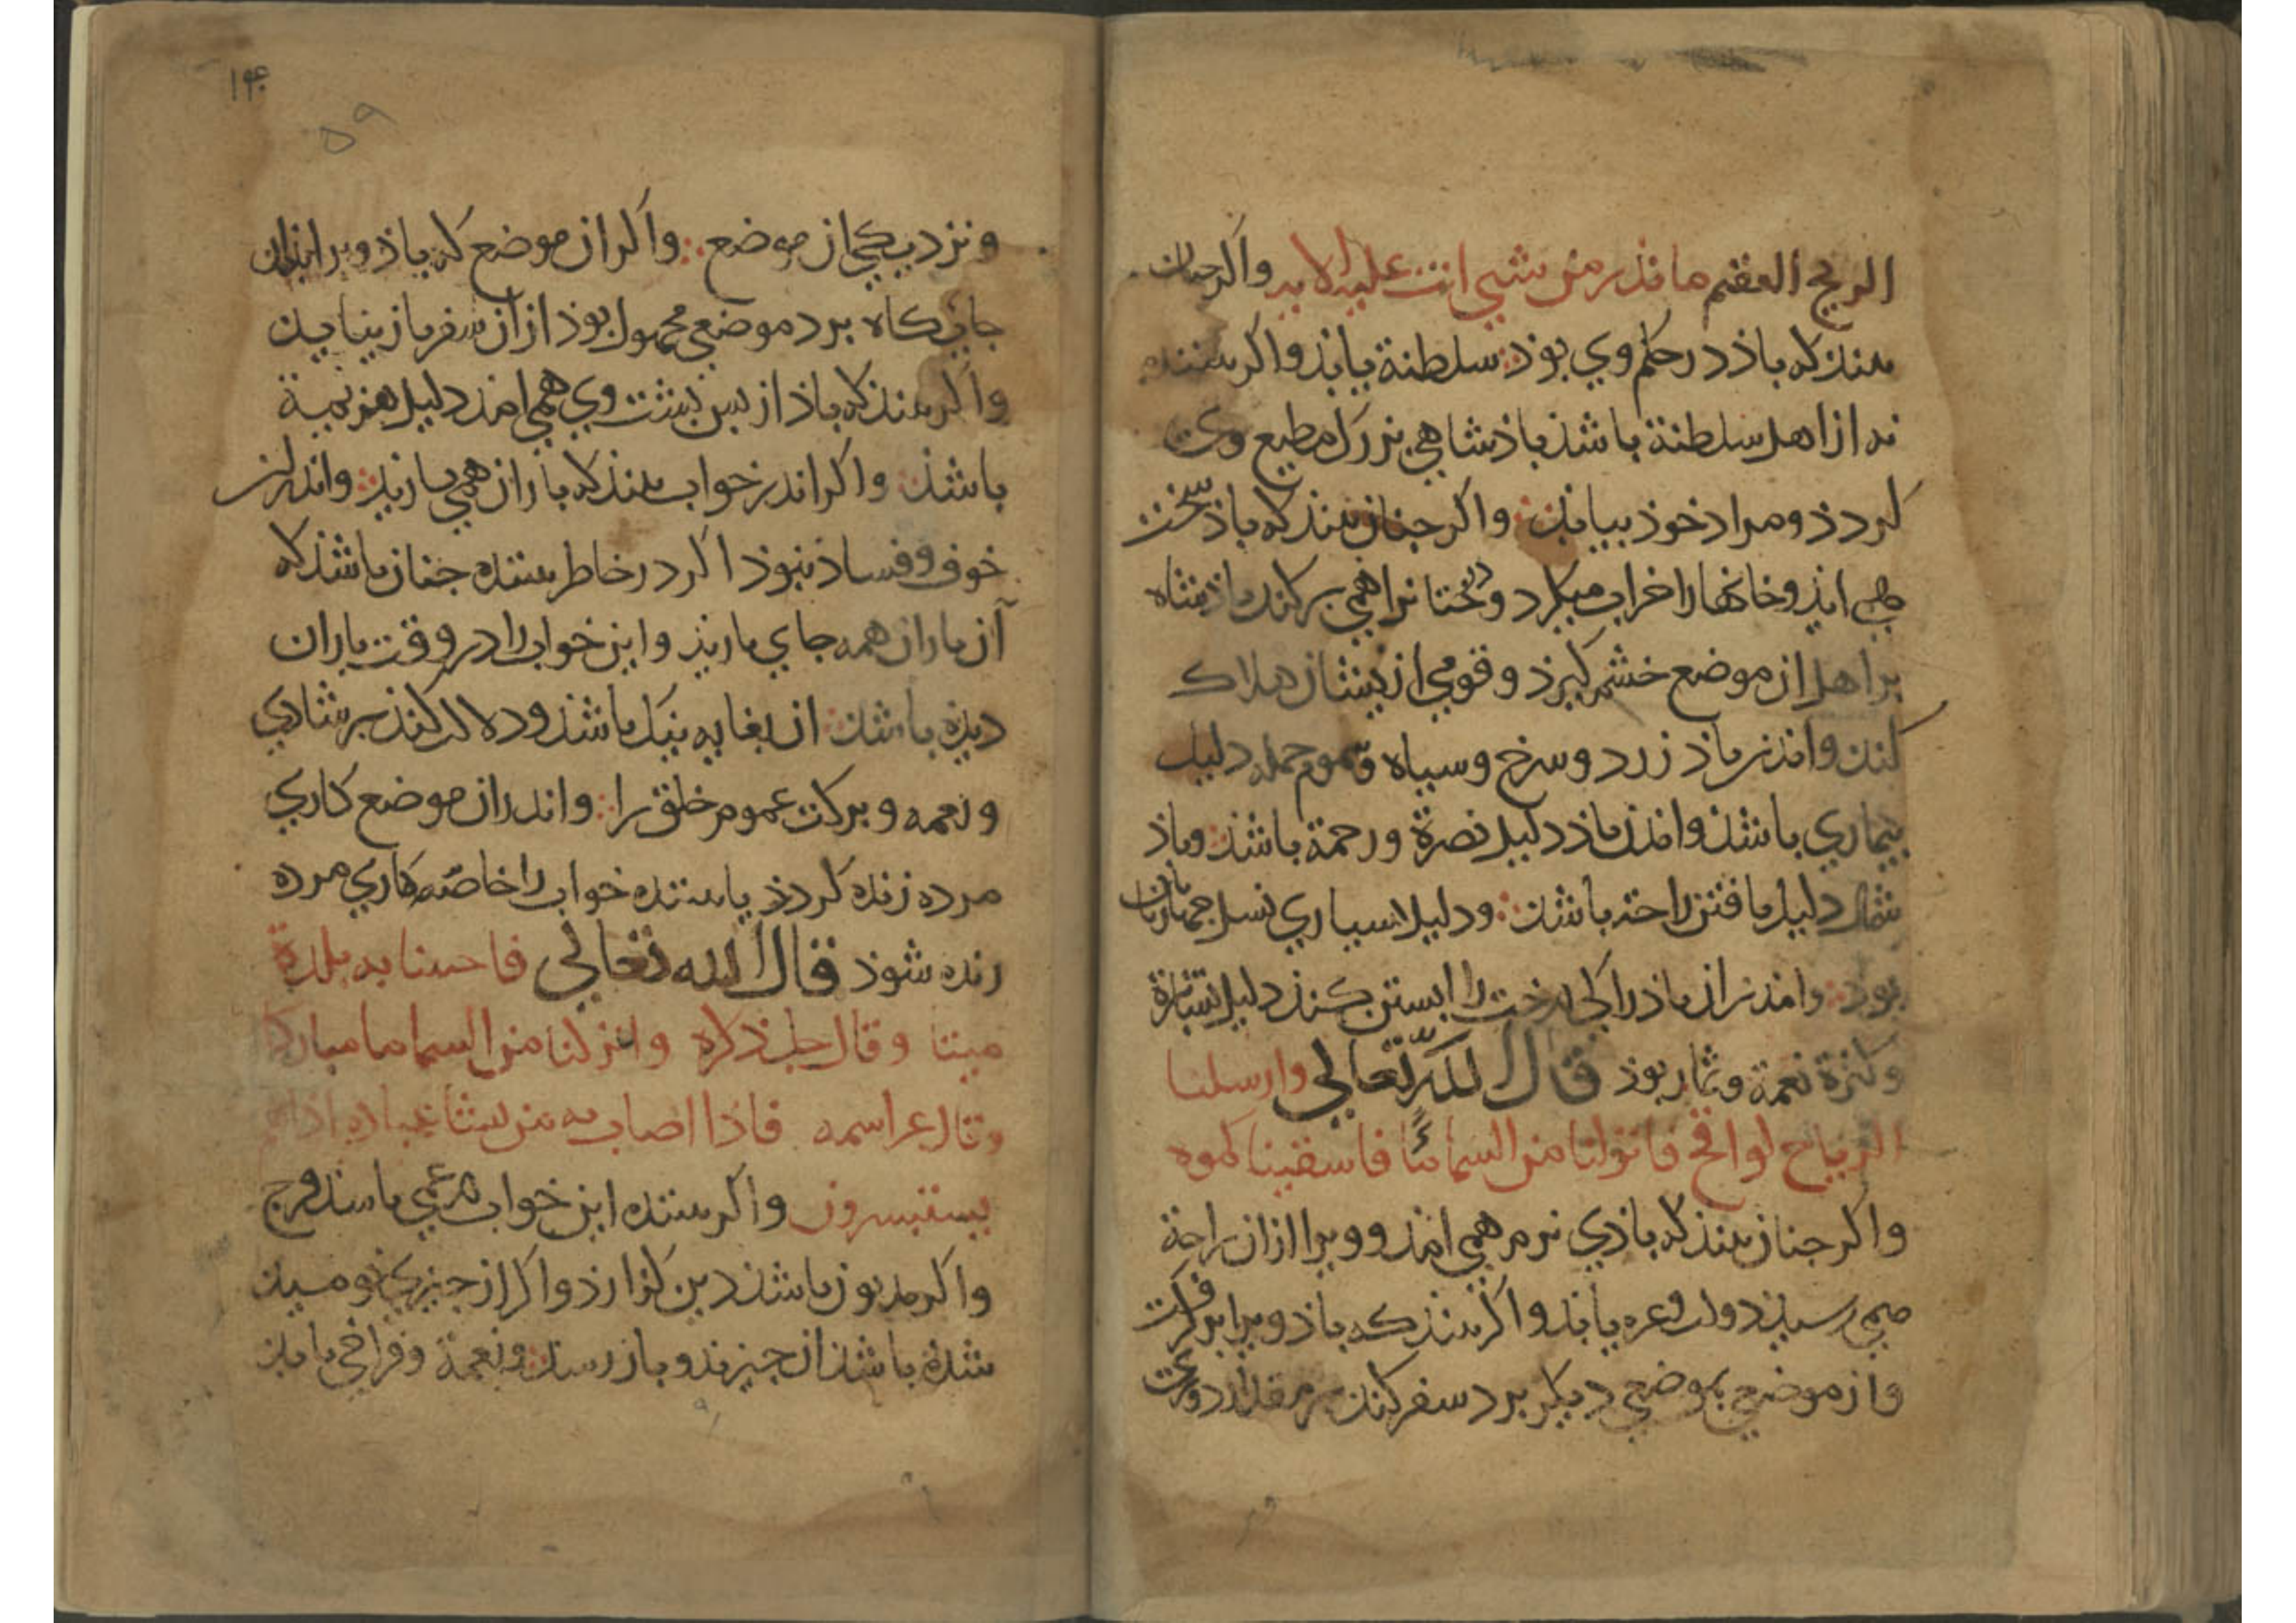 الريح العقيم ما تذر من شيي اتت عليه الا به واكر جنان
بیند که باذ در حکم وي بوذ سلطنة یابذ واکر بیننده
نه از اهل سلطنة باشذ باذشاهي بزرك مطیع وي
کردذ و مراد خوذ بیابذ واکر جنان بیند که باذ سخت
همي ایذ و خانها را خراب میکرد و درختانرا همي برکند باذشاه
بر اهل ان موضع خشم کیرذ و قومي از یشان هلاك
کنذ و اندر باذ زرد و سرخ و سیاه و سموم جمله دلیل
بیماري باشذ و اندر باذ دلیل نصرة و رحمة باشذ و باذ
شمال دلیل یافتن راحة باشذ و دلیل بسیاري نسل
بوذ و اندر ان باذ را کي درخت را ابستن کنذ دلیل
وکثرة نعمة و ثمار بوذ قال الله تعالي وارسلنا
الریاح لواقح فانزلنا من السما مًا فاسقینا کموه
واکر جنان بیند که باذي نرم همي امذ و ویرا ازان راحة
همي رسیذ دولت و عزه یابذ واکر بینذ که باذ ویرا بر کرفت
و از موضعي بموضعي دیکر برد سفر کند بر مقدار دوري
۱۴۰
۵۹
و نزدیکي از موضع واکر ان موضع که باذ ویرا بذان
جایکاه برد موضعي مجهول بوذ از ان سفر باز نیایذ
واکر بینذ که باذ از بس بشت وي همي امذ دلیل هزیمة
باشذ واکر اندر خواب بینذ که باران همي باریذ و اندر ان
خوف و فساذ نبوذ اکر در خاطر بیننده جنان باشذ که
آن باران همه جاي باریذ و این خواب را در وقت باران
دیذه باشذ ان بغایه نیك باشذ و دلالت کنذ بر شادي
و نعمه و برکت عموم خلق را و اندر ان موضع کاري
مرده زنده کردذ یا بیننده خواب را خاصه کاري مرده
زنده شوذ قال الله تعالي فاحینا به بلدة
میتا و قال جل ذکره وانزلنا من السما ما مبارکا
و قال عز اسمه فاذا اصاب به من یشا عباده اذاهم
یستبشرون واکر بیننده این خواب غمي باشذ فرج
واکر مدیون باشذ دین کزارذ واکر از جیزي نومیذ
شذه باشذ ان جیز بذو باز رسذ و نعمة و فراخي یابذ